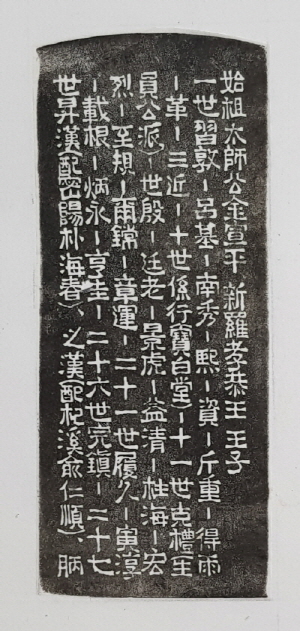 始祖太師公金宣平 新羅孝恭王 王子
一世習敦-呂基-南秀-熙-資-斤重-得雨
-革-三近-十世係行(寶白堂)-十一世克禮(生
員公派)-世殷-廷老-景虎-益清-柱海-宏
烈-至規-爾鏛-章運-二十一世履久-寅淳
-載根-炳永-亨圭-二十六世完鎮-二十七
世昇漢(配密陽朴海春)、之漢(配杞溪兪仁順)、昞